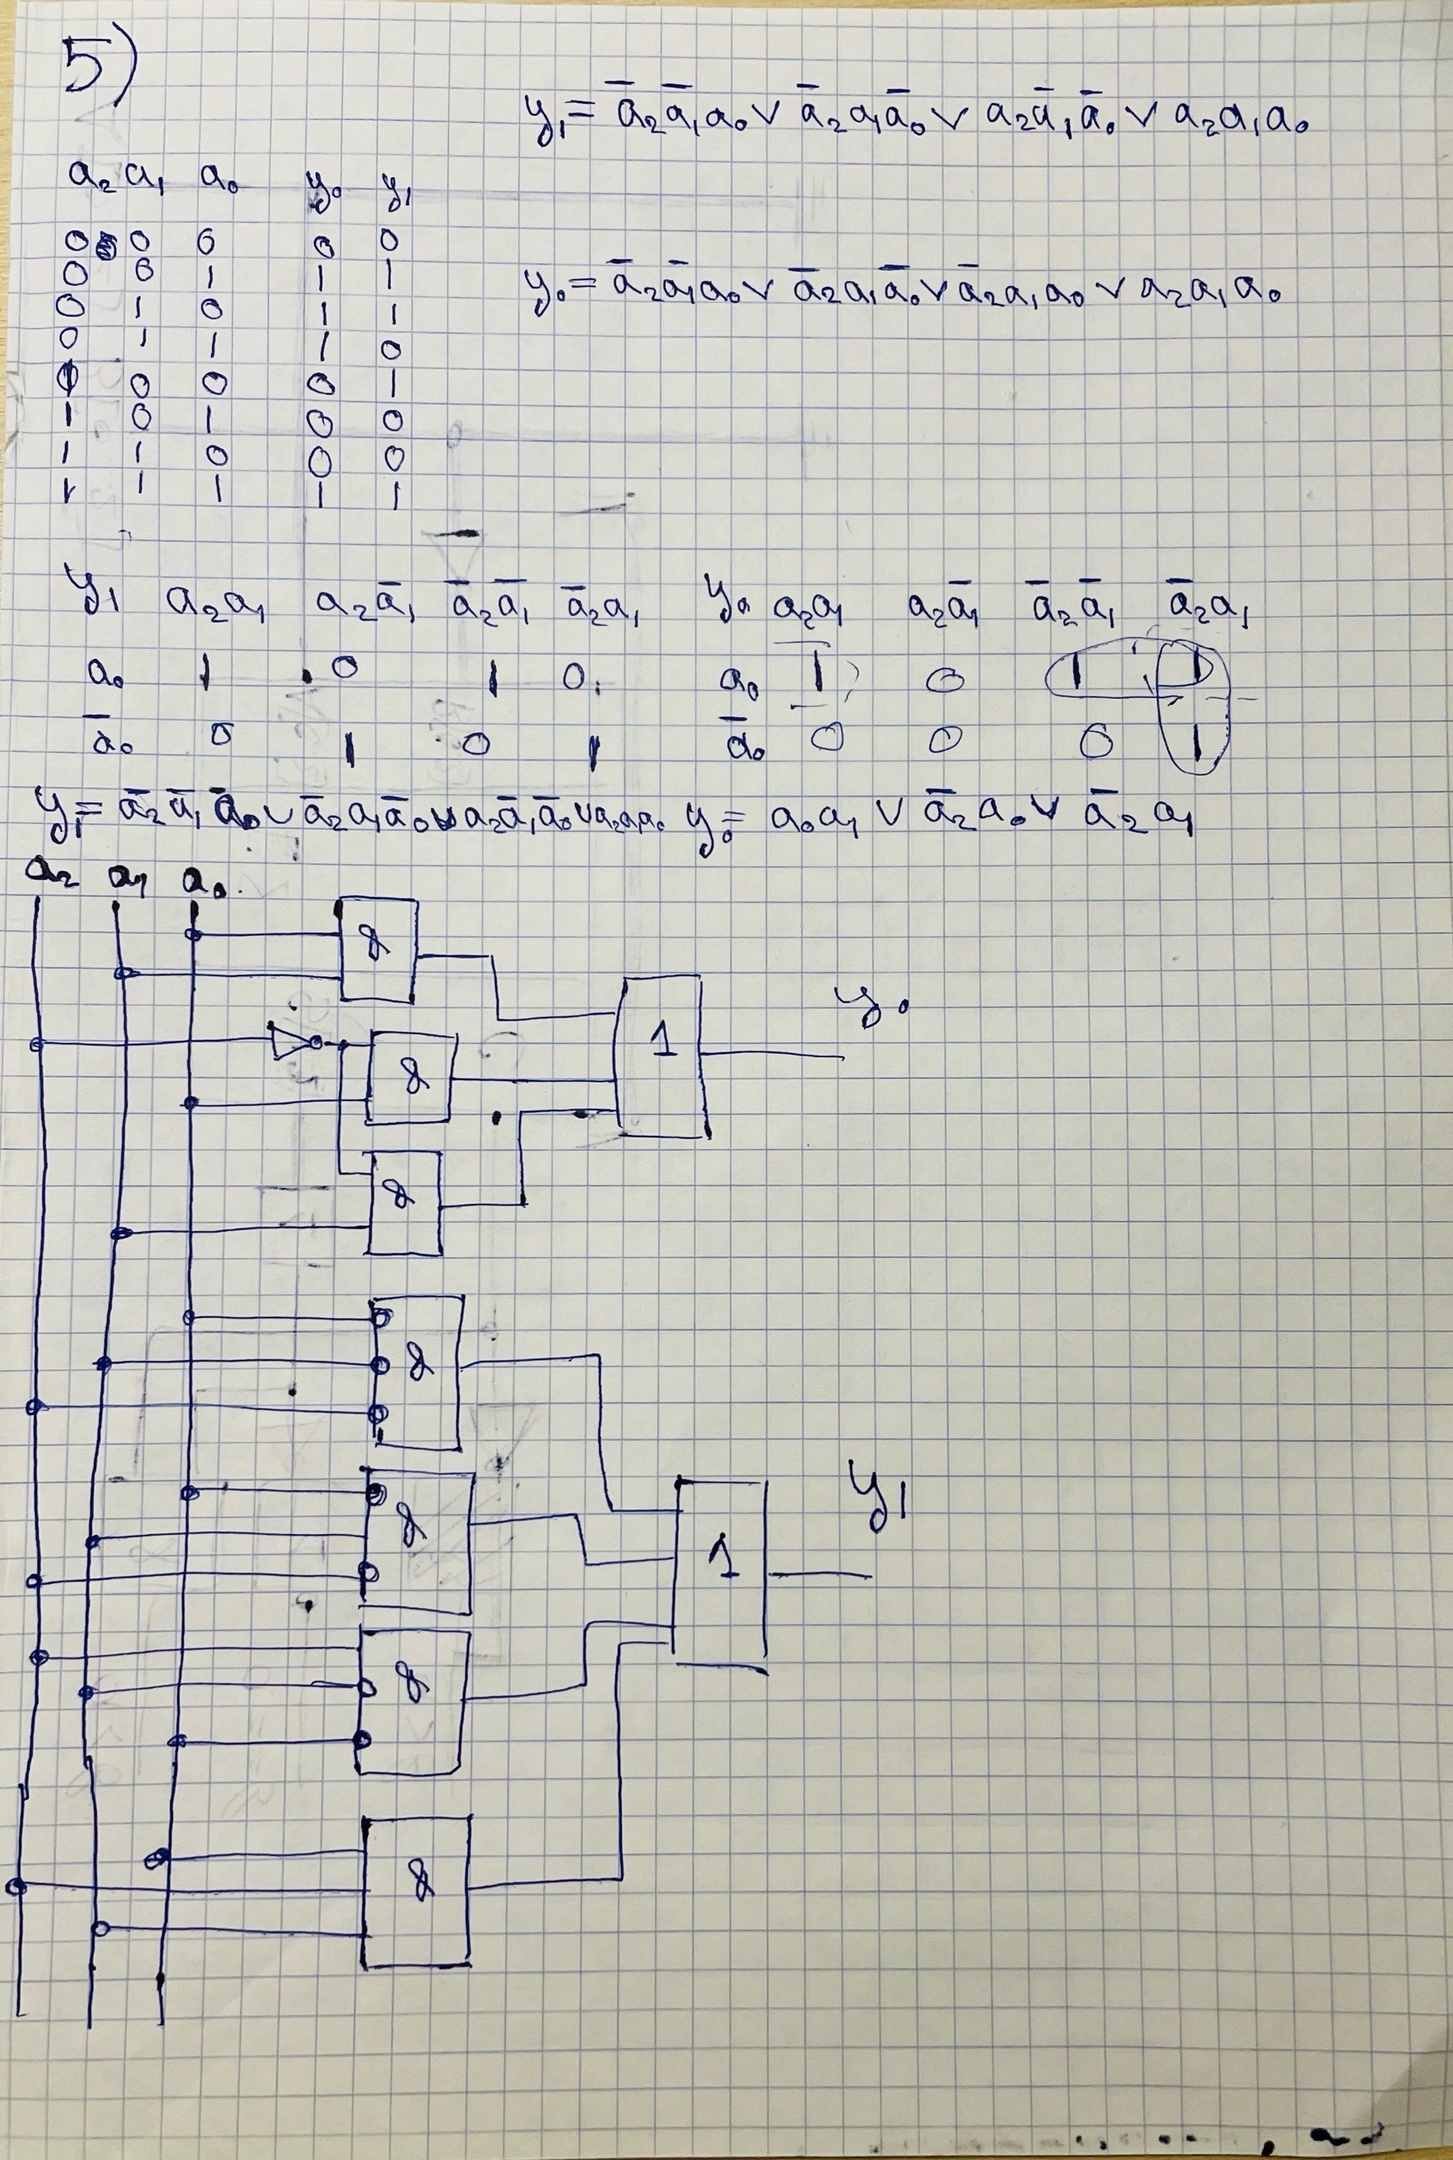 5)
y₁ = a̅₂a̅₁a₀ ∨ a̅₂a₁a̅₀ ∨ a₂a̅₁a̅₀ ∨ a₂a₁a₀
a₂ a₁ a₀ y₀ y₁
0 0 0 0 0
0 0 1 1 1
y₀ = a̅₂a̅₁a₀ ∨ a̅₂a₁a̅₀ ∨ a̅₂a₁a₀ ∨ a₂a₁a₀
0 1 0 1 1
0 1 1 1 0
1 0 0 0 1
1 0 1 0 0
1 1 0 0 0
1 1 1 1 1
y₁ a₂a₁ a₂a̅₁ a̅₂a̅₁ a̅₂a₁
a₀ 1 0 1 0
a̅₀ 0 1 0 1
y₀ a₂a₁ a₂a̅₁ a̅₂a̅₁ a̅₂a₁
a₀ 1 0 1 1
a̅₀ 0 0 0 1
y₁ = a̅₂a̅₁a̅₀ ∨ a̅₂a₁a̅₀ ∨ a₂a̅₁a̅₀ ∨ a₂a₁a₀
y₀ = a₀a₁ ∨ a̅₂a₀ ∨ a̅₂a₁
a₂ a₁ a₀
&
1
y₀
&
&
&
&
1
y₁
&
&